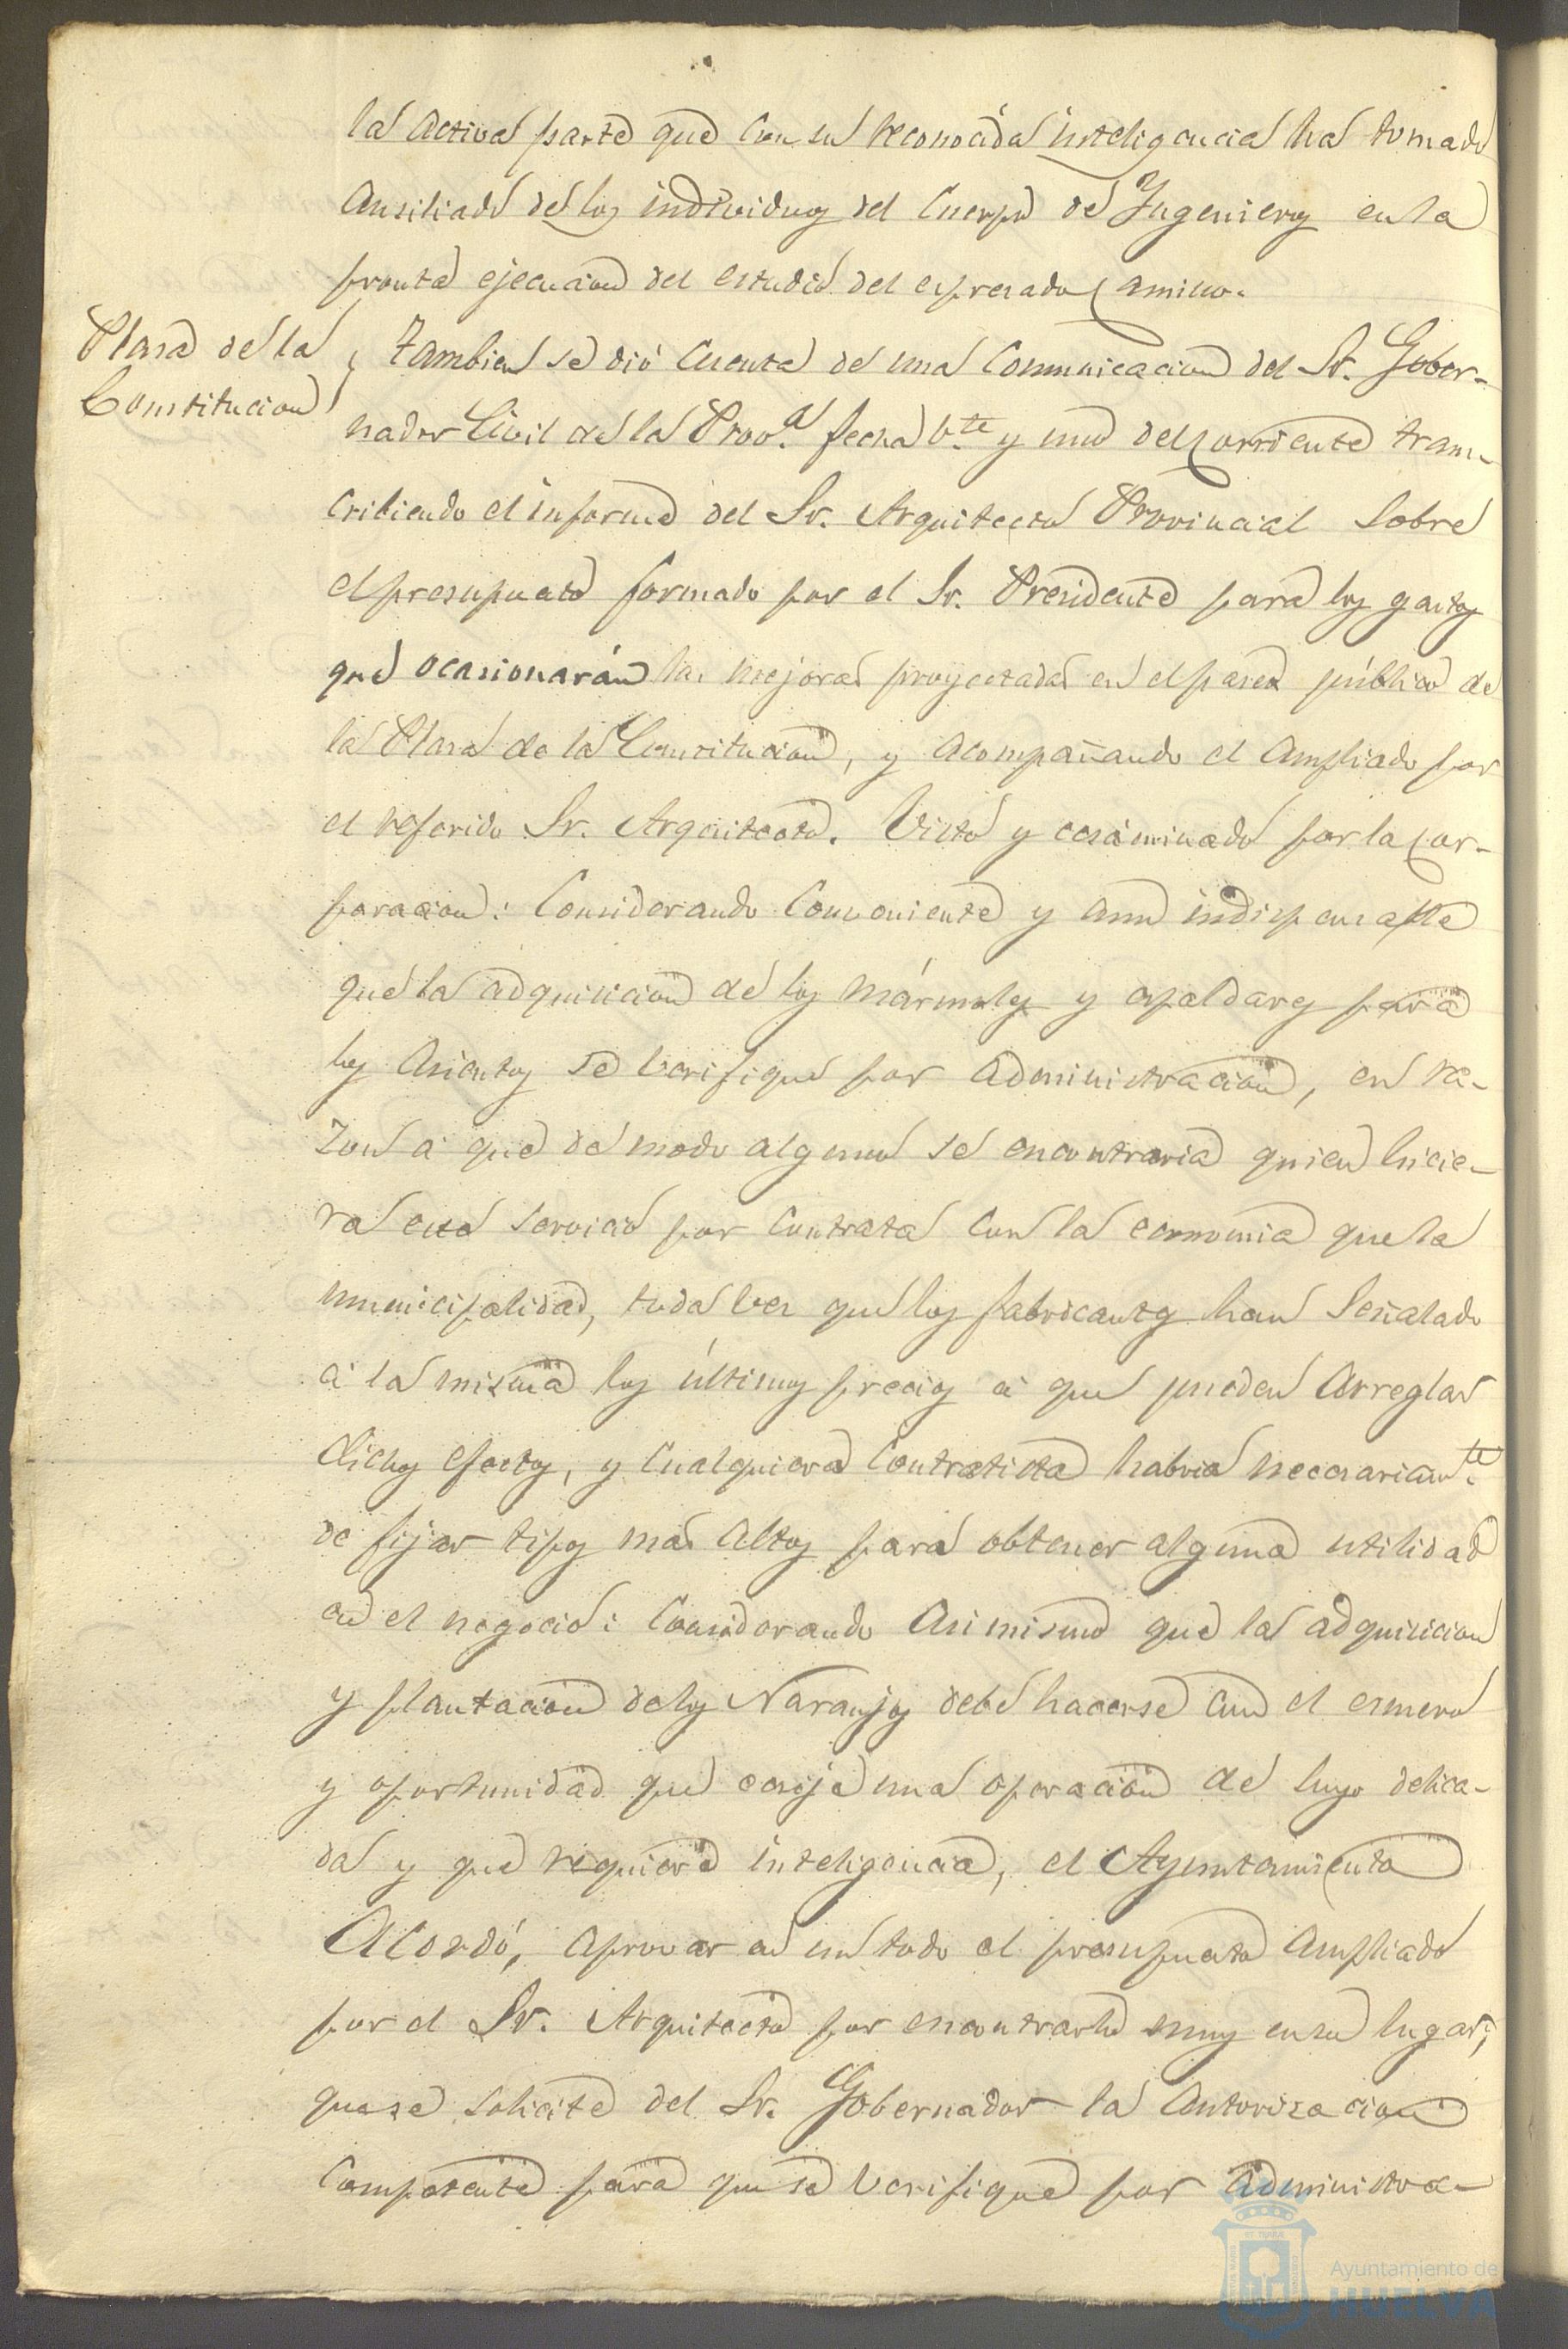 la activa parte que con su reconocida inteligencia ha tomado
ausiliado de los individuos del Cuerpo de Ingenieros en la
pronta ejecucion del estudio del espresado Camino.
Plasa de la
Constitucion
Tambien se dió cuenta de una comunicacion del Sr. Gober-
nador Civil de la Prov.a fecha v.te y uno del corriente trans-
cribiendo el informe del Sr. Arquitecto Provincial sobre
el presupuesto formado por el Sr. Presidente para los gastos
que ocasionarán las mejoras proyectadas en el paseo público de
la Plasa de la Constitucion, y acompañando el ampliado por
el referido Sr. Arquitecto. Visto y ecsaminado por la Cor-
poracion: Considerando conveniente y aun indispensable
que la adquisicion de los mármoles y espaldares para
los asientos se verifique por administracion, en ra-
zon á que de modo alguno se encontraria quien hicie-
ra ese servicio por contrata con la economia que la
municipalidad, toda ves que los fabricantes han señalado
á la misma los últimos precios á que pueden arreglar
dichos efectos, y cualquiera contratista habria necesariam.te
de fijar tipos mas altos para obtener alguna utilidad
en el negocio: Considerando asimismo que la adquisicion
y plantacion de los Naranjos debe hacerse con el esmero
y oportunidad que ecsije una operacion de suyo delica-
da y que requiere inteligencia, el Ayuntamiento
Acordó, aprovar en un todo el presupuesto ampliado
por el Sr. Arquitecto por encontrarlo muy en su lugar;
que se solicite del Sr. Gobernador la autorisacion
competente para que se verifique por administra-
Ayuntamiento de
HUELVA